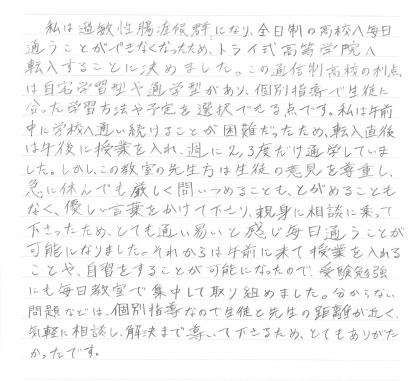 私は過敏性腸症候群になり、全日制の高校へ毎日
通うことができなくなったため、トライ式高等学院へ
転入することに決めました。この通信制高校の利点
は自宅学習型や通学型があり、個別指導で生徒に
合った学習方法や予定を選択できる点です。私は午前
中に学校へ通い続けることが困難だったため、転入直後
は午後に授業を入れ、週に2,3度だけ通学していま
した。しかし、この教室の先生方は生徒の意見を尊重し、
急に休んでも厳しく問いつめることも、とがめることも
なく、優しい言葉をかけて下さり、親身に相談に乗って
下さったため、とても通い易いと感じ毎日通うことが
可能になりました。それからは午前に来て授業を入れる
ことや、自習をすることが可能になったので、受験勉強
にも毎日教室で集中して取り組めました。分からない
問題などは、個別指導なので生徒と先生の距離が近く、
気軽に相談し、解決まで導いて下さるため、とてもありがた
かったです。